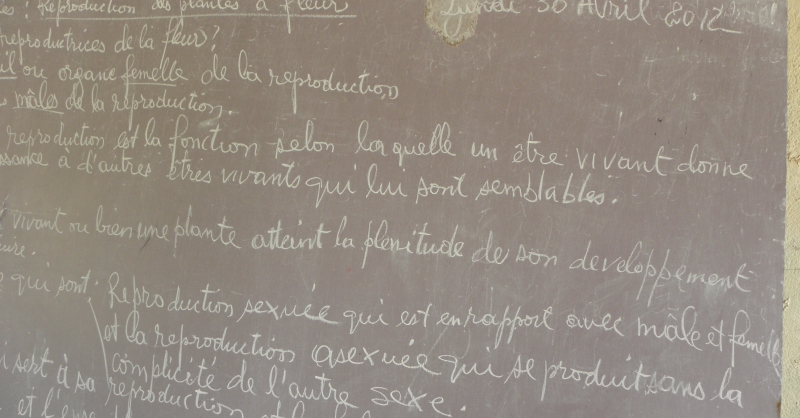 : Reproduction des plantes à fleur
Lundi 30 Avril 2012
reproductrices de la fleur?
il ou organe femelle de la reproduction
mâles de la reproduction.
reproduction est la fonction selon laquelle un être vivant donne
ssance à d'autres êtres vivants qui lui sont semblables.
vivant ou bien une plante atteint la plenitude de son developpement
qui sont
Reproduction sexuée qui est en rapport avec mâle et femelle
et la reproduction asexuée qui se produit sans la
complicité de l'autre sexe.
i sert à sa reproduction
et l'